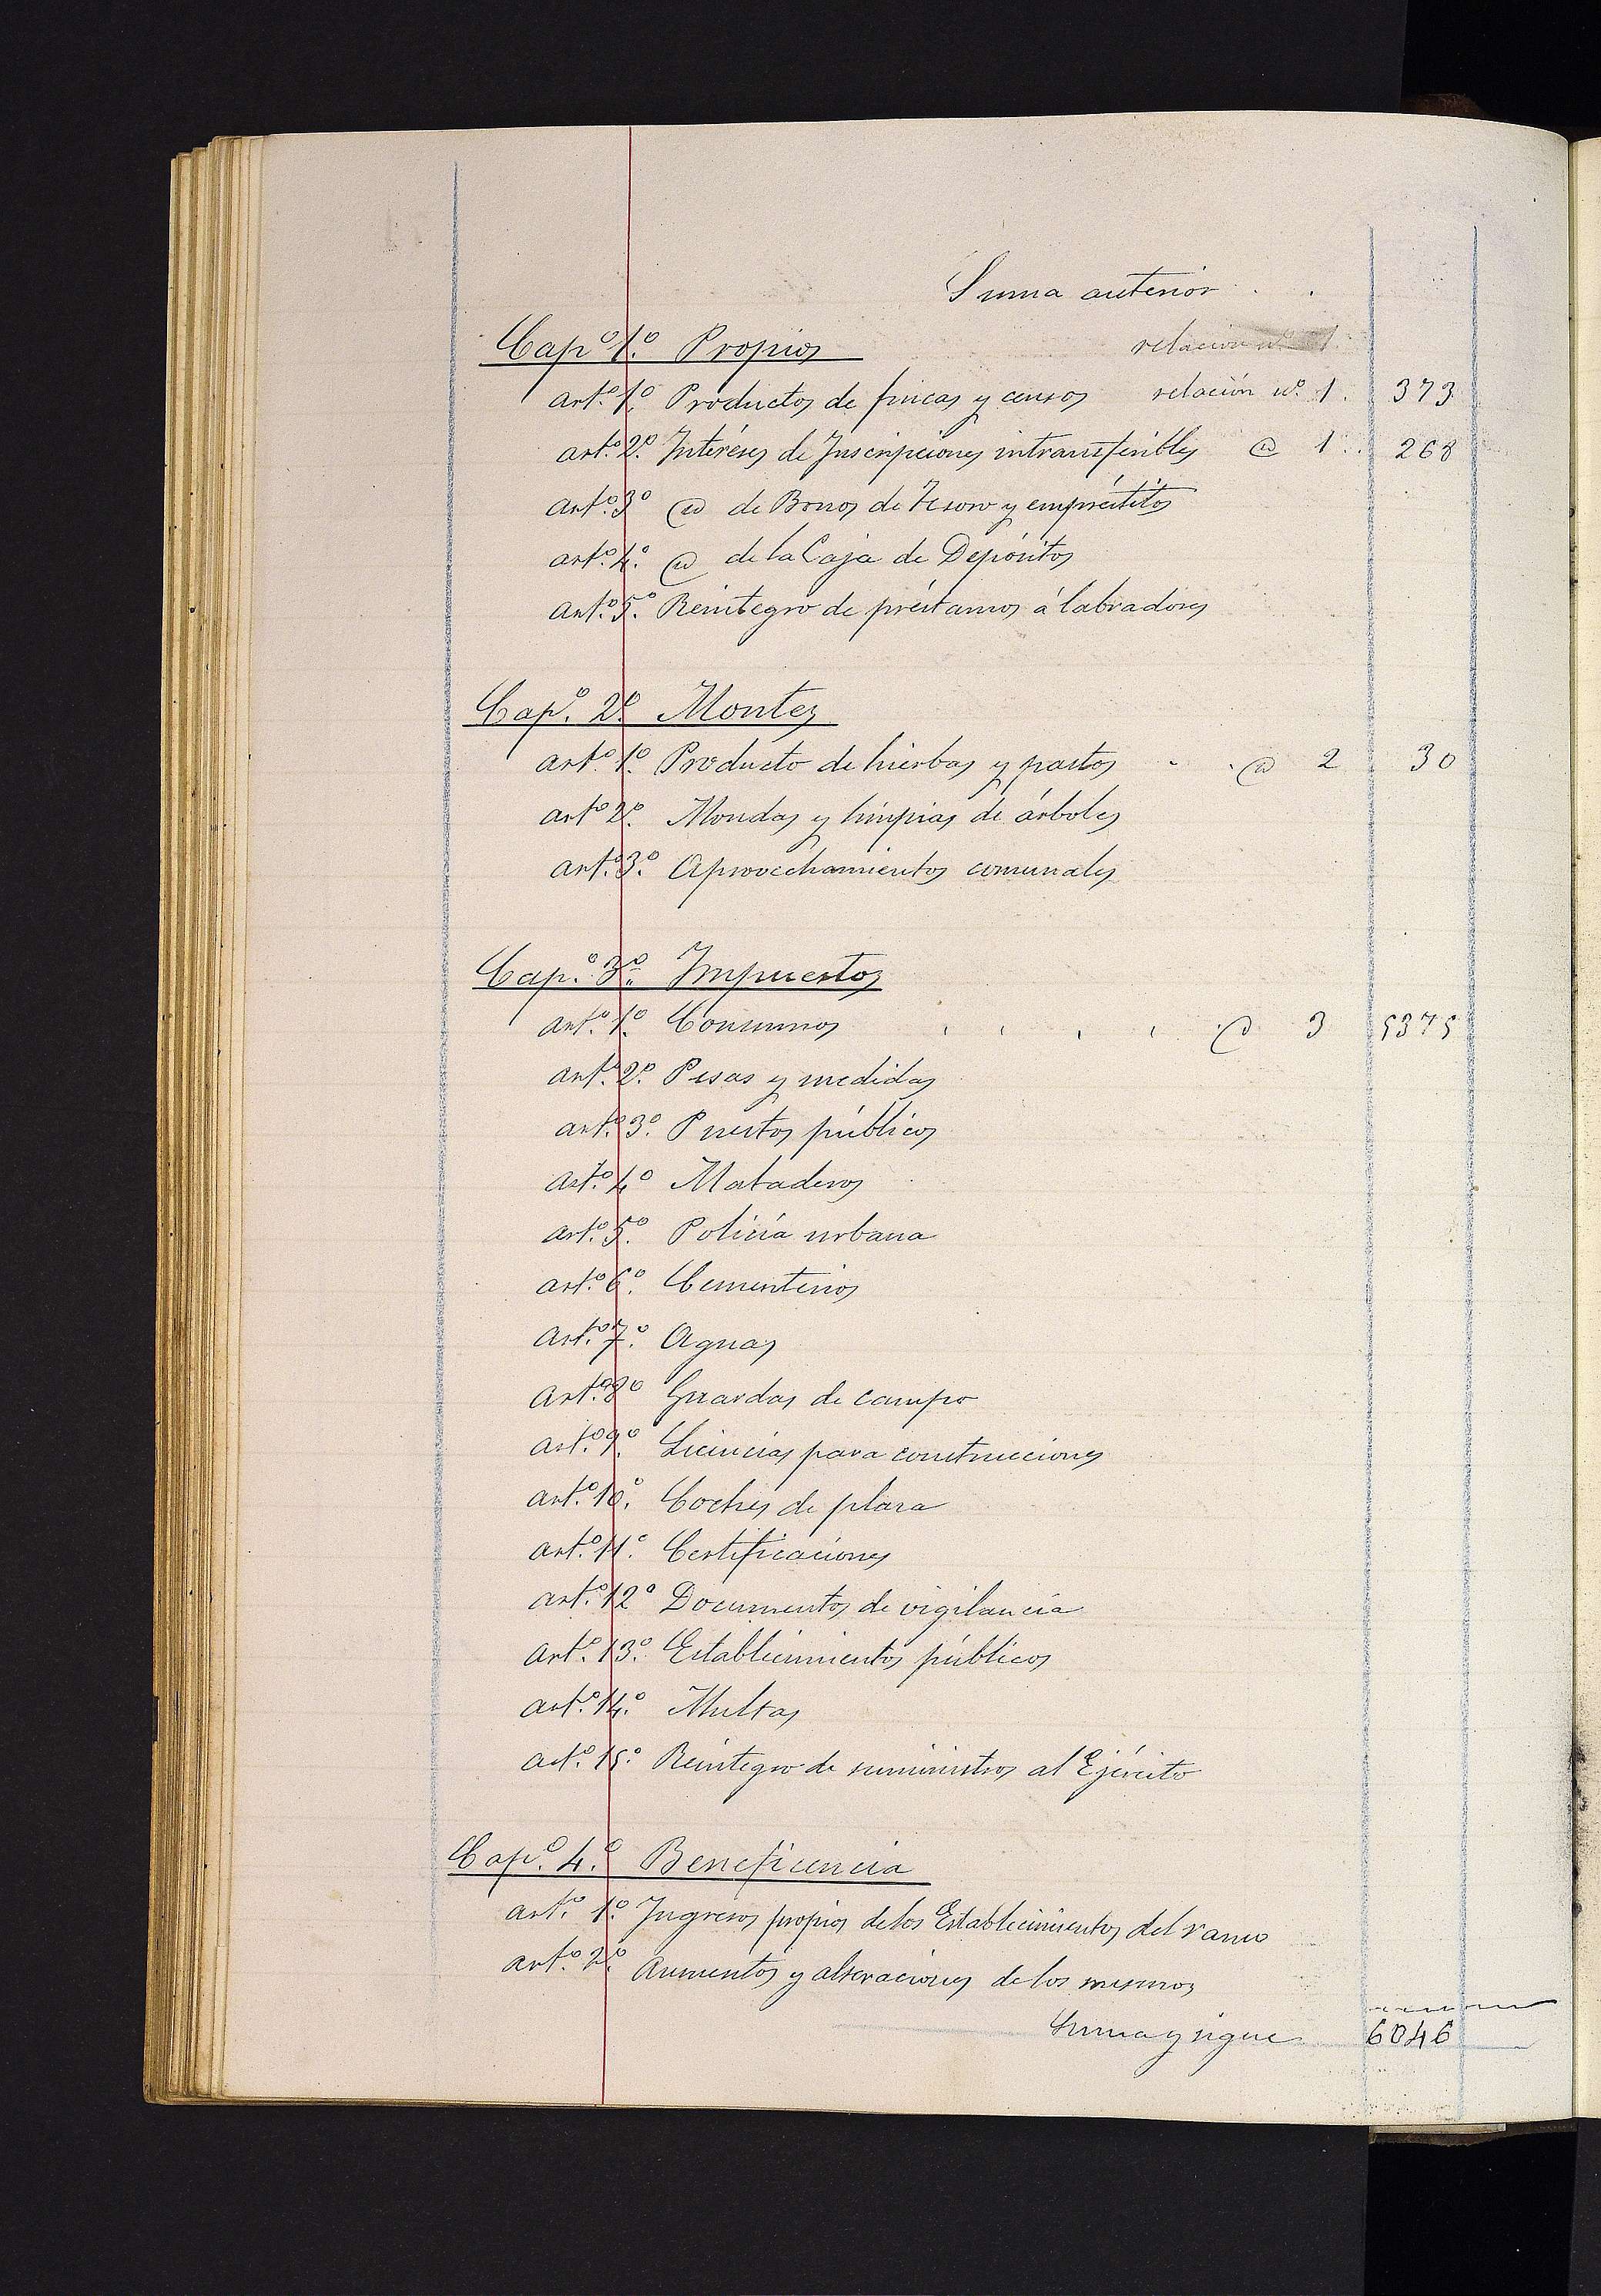 Suma anterior . .
Capº 1º. Propios relación nº 1.
artº. 1º. Productos de fincas y censos relación nº. 1. 373
artº. 2º. Intereses de Inscripciones intransferibles @ 1. . 268
artº. 3º @ de Bonos de Tesoro y empréstitos
artº. 4º. @ de la Caja de Depósitos
artº. 5º. Reintegro de préstamos á labradores
Capº. 2º. Montes
artº. 1º. Producto de hierbas y pastos - - @ 2 30
artº 2º. Mondas y limpias de árboles
artº. 3º. Aprovechamientos comunales
Capº. 3º. Impuestos
artº. 1º. Consumos , , , , @ 3 5375
artº. 2º. Pesas y medidas
artº. 3º. Puestos públicos
artº. 4º Mataderos
artº. 5º. Policía urbana
artº. 6º. Cementerios
artº. 7º. Aguas
artº. 8º Guardas de campo
artº. 9º. Licencias para construcciones
artº. 10º. Coches de plaza
artº. 11º. Certificaciones
artº. 12º Documentos de vigilancia
artº. 13º. Establecimientos públicos
artº. 14º. Multas
artº. 15º. Reintegro de suministros al Ejército
Capº. 4º. Beneficencia
artº. 1º. Ingresos propios de los Establecimientos del ramo
artº. 2º. Aumentos y alteraciones de los mismos
Suma y sigue 6046